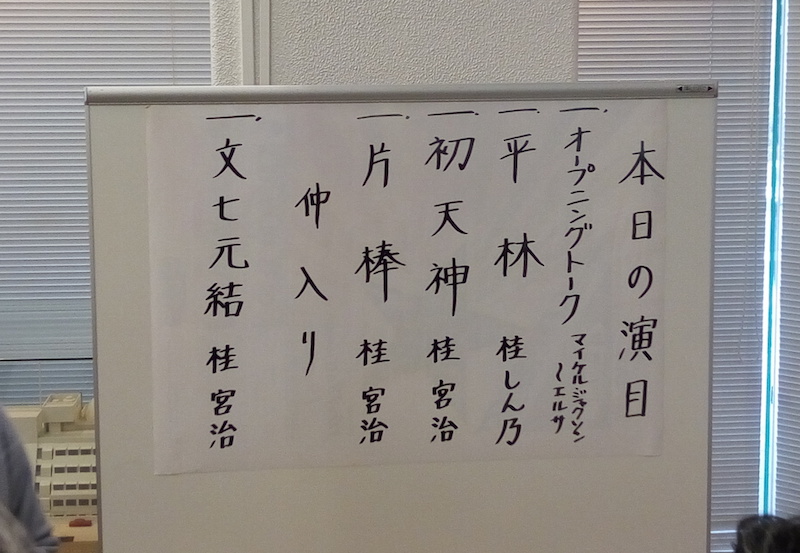 本日の演目
一、オープニングトーク マイケルジャクソン
〜エルサ
一、平林 桂しん乃
一、初天神 桂宮治
一、片棒 桂宮治
仲入り
一、文七元結 桂宮治